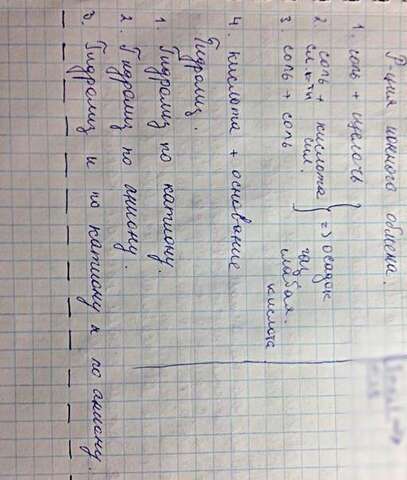 Р-ция ионного обмена.
1. соль + щелочь
2. соль + кислота } => осадок
сл. сил. газ
3. соль + соль слабая.
кислота
4. кислота + основание
Гидролиз.
1. Гидролиз по катиону.
2. Гидролиз по аниону.
3. Гидролиз и по катиону и по аниону.